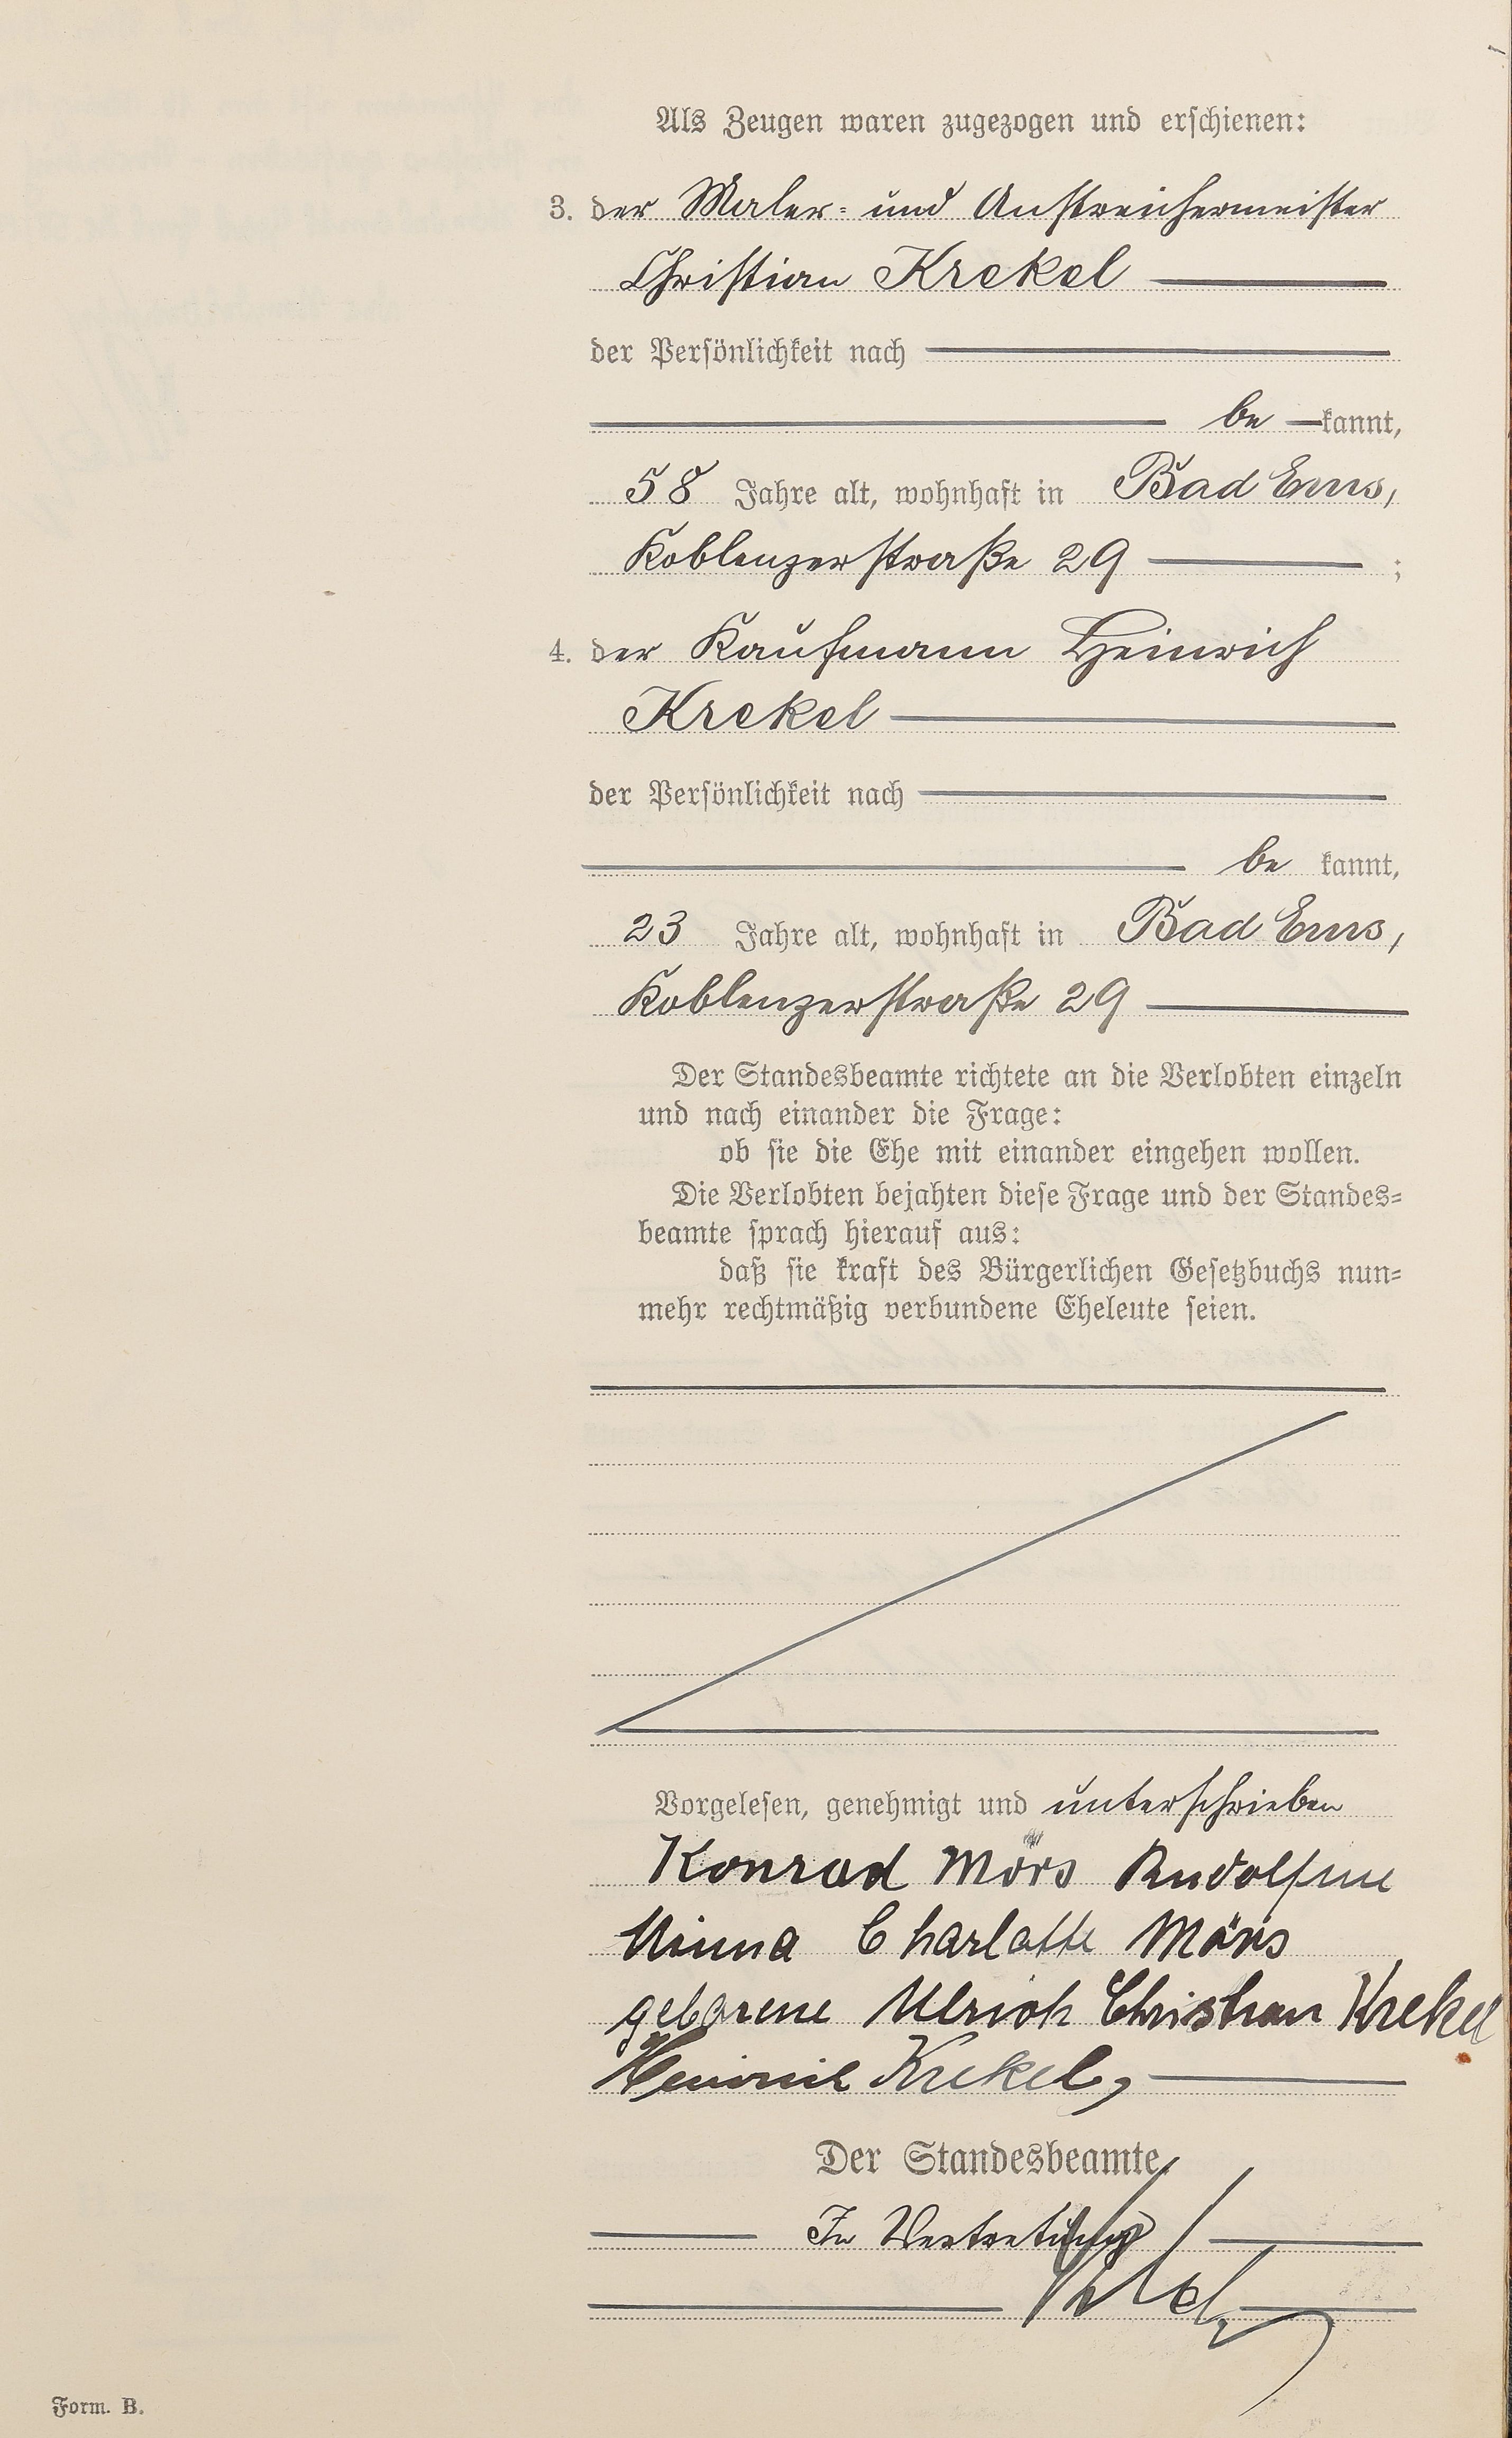 Als Zeugen waren zugezogen und erschienen:
3. der Maler- und Anstreichermeister
Christian Krekel
der Persönlichkeit nach
be kannt,
58 Jahre alt, wohnhaft in Bad Ems,
Koblenzerstraße 29 ;
4. der Kaufmann Heinrich
Krekel
der Persönlichkeit nach
be kannt,
23 Jahre alt, wohnhaft in Bad Ems,
Koblenzerstraße 29
Der Standesbeamte richtete an die Verlobten einzeln
und nach einander die Frage:
ob sie die Ehe mit einander eingehen wollen.
Die Verlobten bejahten diese Frage und der Standes=
beamte sprach hierauf aus:
daß sie kraft des Bürgerlichen Gesetzbuchs nun=
mehr rechtmäßig verbundene Eheleute seien.
Vorgelesen, genehmigt und unterschrieben
Konrad Mörs Rudolfine
Minna Charlotte Mörs
geborene Ulrich Christian Krekel
Heinrich Krekel,
Der Standesbeamte.
In Vertretung
Form. B.